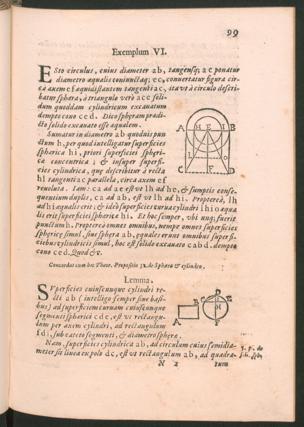 99
Exemplum VI.
Esto circulus, cuius diameter ab, tangensq; ac ponatur
diametro aqualis coniunctaq; ec, convertatur figura cir-
ca axem ef aquidistantem tangenti ac, ita vt à circulo descri-
batur sphæra, à triangulo verò ace soli-
dum quoddam cylindricum excauatum
dempto cono ced. Dico sphæram prædi-
cto solido excauato esse æqualem.
Sumatur in diametro ab quoduis pun-
ctum h, per quod intelligatur superficies
sphærica hi, priori superficiei sphæri-
cæ concentrica; & insuper superfi-
cies cylindrica, quæ describitur à recta
hl tangenti ac parallela, circa axem ef
reuoluta. Iam: ca ad ae est vt lh ad he, & sumptis conse-
quentium duplis, ca ad ab, est vt lh ad hi. Propterea, lh
ad hi æqualis erit; & ideò superficies curua cylindri lhio æqua-
lis erit superficiei sphæricæ hi. Et hoc semper, vbi unq; fuerit
punctum h. Propterea omnes omnium, nempe omnes superficies
sphæricæ simul, siue sphæra ab, æquales erunt omnibus superfi-
ciebus cylindricis simul, hoc est solido excauato cabd, dempto
cono ced. Quod &c.
Concordat cum hoc Theor. Propositio 32. de Sphæra & cylindro.
Lemma.
Superficies cuiuscunque cylindri re-
cti ab (intelligo semper sine basi-
bus) ad superficiem curuam cuiuscunque
segmenti sphærici cde, est vt rectangu-
lum per axem cylindri, ad rectangulum
fdi, sub axe to segmenti, & diametro sphæræ.
Nam, superficies cylindrica ab, ad circulum cuius semidia-
meter sit linea ex polo dc, est vt rectangulum ab, ad quadra-
N 2
tum
A H E I B
L O
C F D
A
B
C
D
E
H